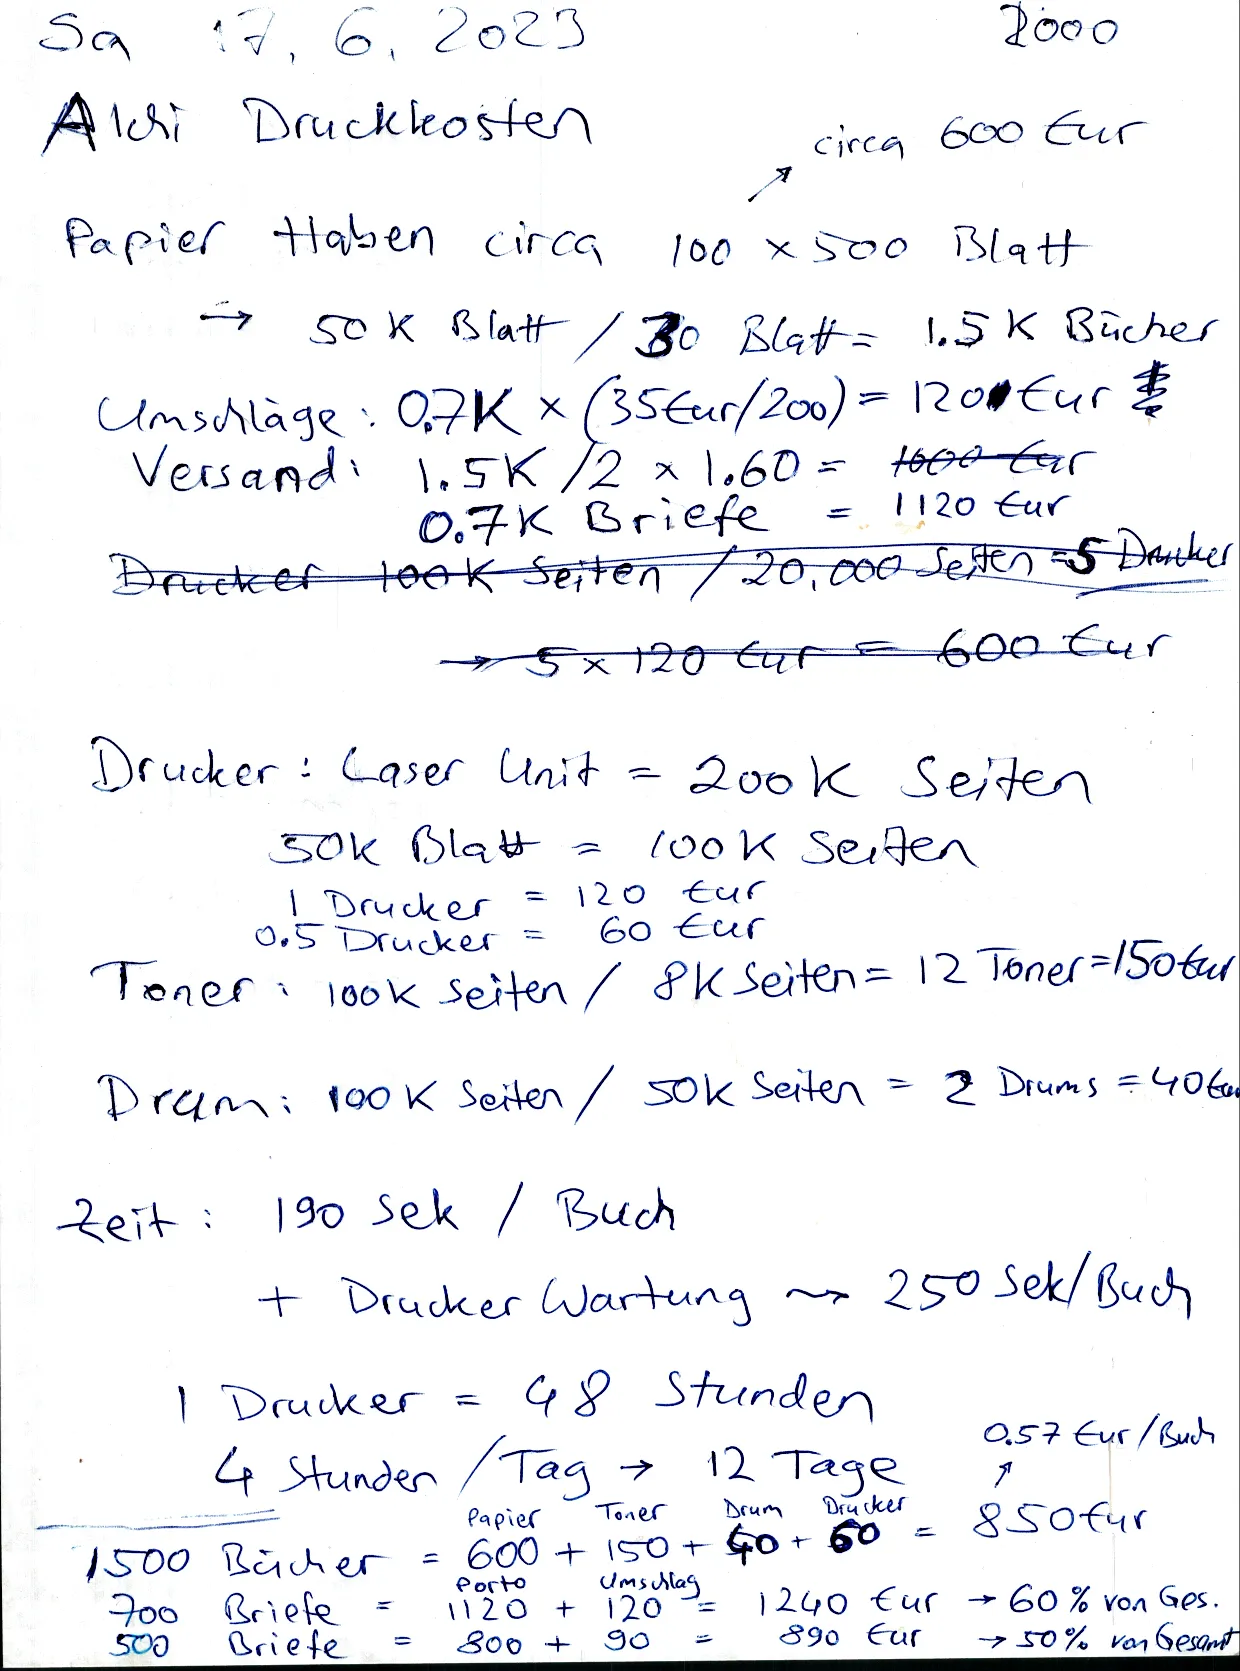 Sa 17.6.2023 2000
Alchi Druckkosten
circa 600 Eur
↗
Papier Haben circa 100 x 500 Blatt
→ 50K Blatt / 30 Blatt = 1.5K Bücher
Umschläge: 0.7K x (35Eur/200) = 120 Eur
Versand: 1.5K /2 x 1.60 = 1000 Eur
0.7K Briefe = 1120 Eur
Drucker 100K Seiten / 20,000 Seiten = 5 Drucker
→ 5 x 120 Eur = 600 Eur
Drucker: Laser Unit = 200K Seiten
50K Blatt = 100K Seiten
1 Drucker = 120 Eur
0.5 Drucker = 60 Eur
Toner: 100K Seiten / 8K Seiten = 12 Toner = 150 Eur
Drum: 100K Seiten / 50K Seiten = 2 Drums = 40 Eur
Zeit: 190 Sek / Buch
+ Drucker Wartung ~> 250 Sek/Buch
1 Drucker = 48 Stunden
0.57 Eur/Buch
4 Stunden /Tag → 12 Tage ↗
Papier Toner Drum Drucker
1500 Bücher = 600 + 150 + 40 + 60 = 850 Eur
Porto Umschlag
700 Briefe = 1120 + 120 = 1240 Eur → 60% von Ges.
500 Briefe = 800 + 90 = 890 Eur → 50% von Gesamt